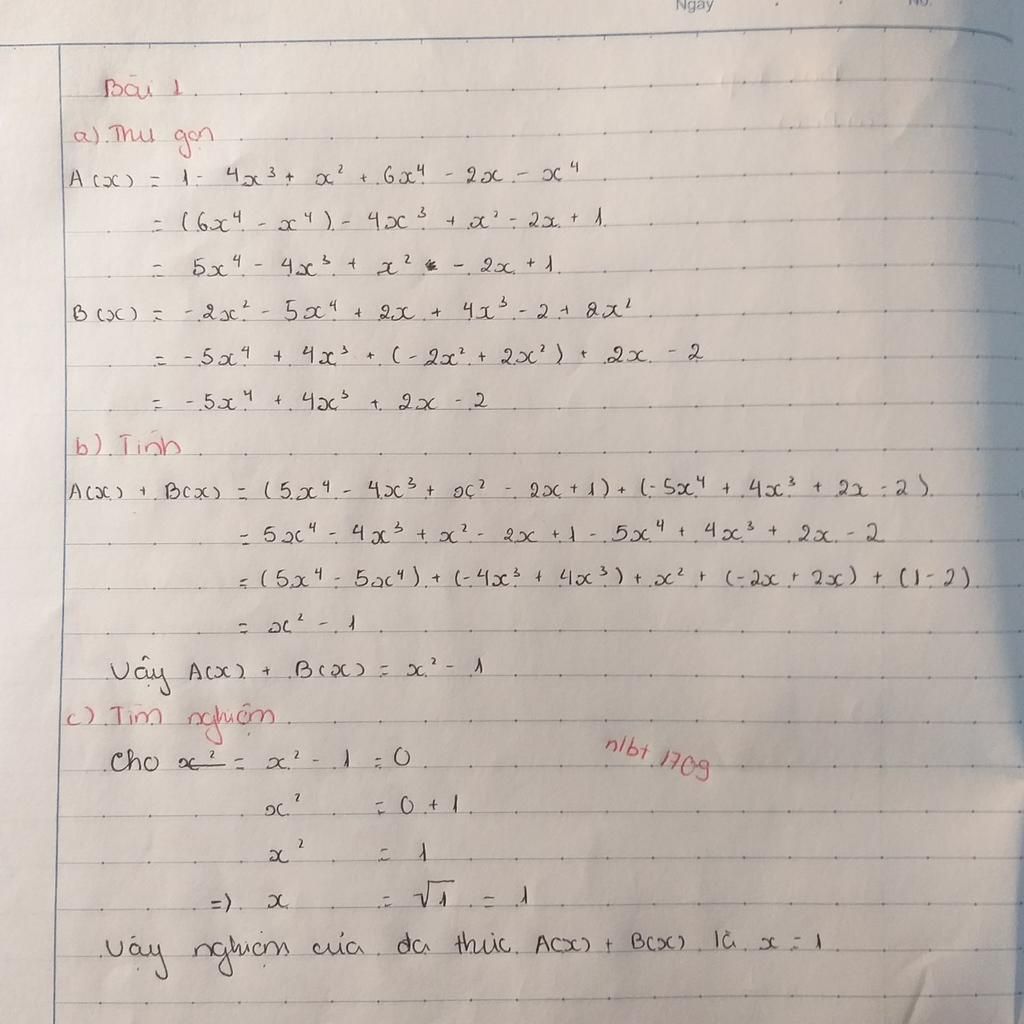 Ngày
No.
Bài 1
a) Thu gọn
A(x) = 1 - 4x³ + x² + 6x⁴ - 2x - x⁴
= (6x⁴ - x⁴) - 4x³ + x² - 2x + 1
= 5x⁴ - 4x³ + x² - 2x + 1
B(x) = -2x² - 5x⁴ + 2x + 4x³ - 2 + 2x²
= -5x⁴ + 4x³ + (-2x² + 2x²) + 2x - 2
= -5x⁴ + 4x³ + 2x - 2
b) Tính
A(x) + B(x) = (5x⁴ - 4x³ + x² - 2x + 1) + (-5x⁴ + 4x³ + 2x - 2)
= 5x⁴ - 4x³ + x² - 2x + 1 - 5x⁴ + 4x³ + 2x - 2
= (5x⁴ - 5x⁴) + (-4x³ + 4x³) + x² + (-2x + 2x) + (1 - 2)
= x² - 1
Vậy A(x) + B(x) = x² - 1
c) Tìm nghiệm
Cho x² = x² - 1 = 0
n/bt 1709
x² = 0 + 1
x² = 1
=> x = √1 = 1
Vậy nghiệm của đa thức A(x) + B(x) là x = 1